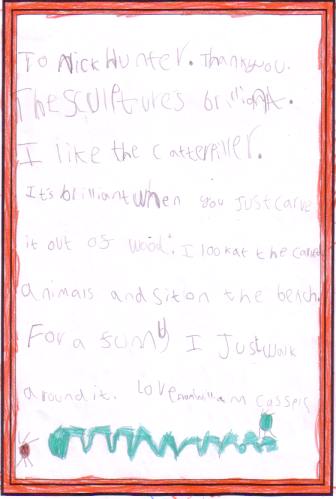 To Nick Hunter. Thankyou.
The sculptures brilliant.
I like the catterpiller.
It's brilliant when you Just carve
it out of wood. I look at the carved
animals and sit on the bench.
For a I Just walk
around it. Love from william Casspis